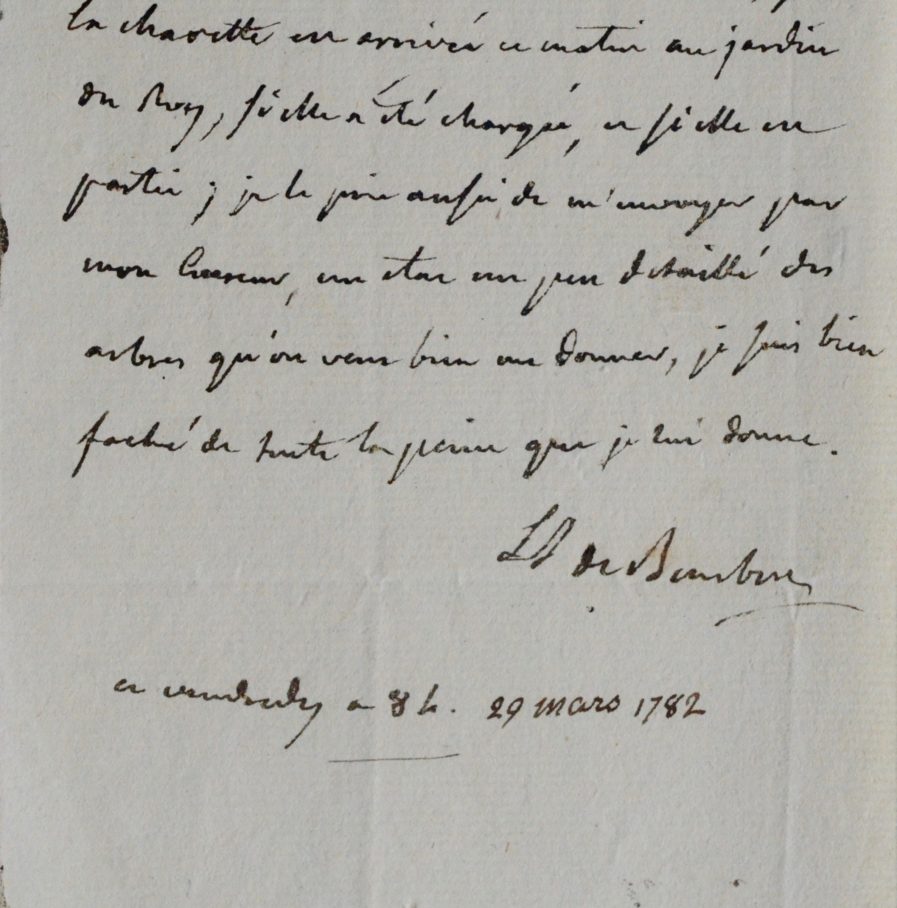 la charette est arrivée ce matin au jardin
du Roy, si elle a été chargée, et si elle est
partie ; je le prie aussi de m'envoyer par
mon Coureur, un etat un peu detaillé des
arbres qu'on veut bien me donner, je suis bien
faché de toute la peine que je lui donne.
de Bourbon
ce vendredy a 8 h. 29 mars 1782